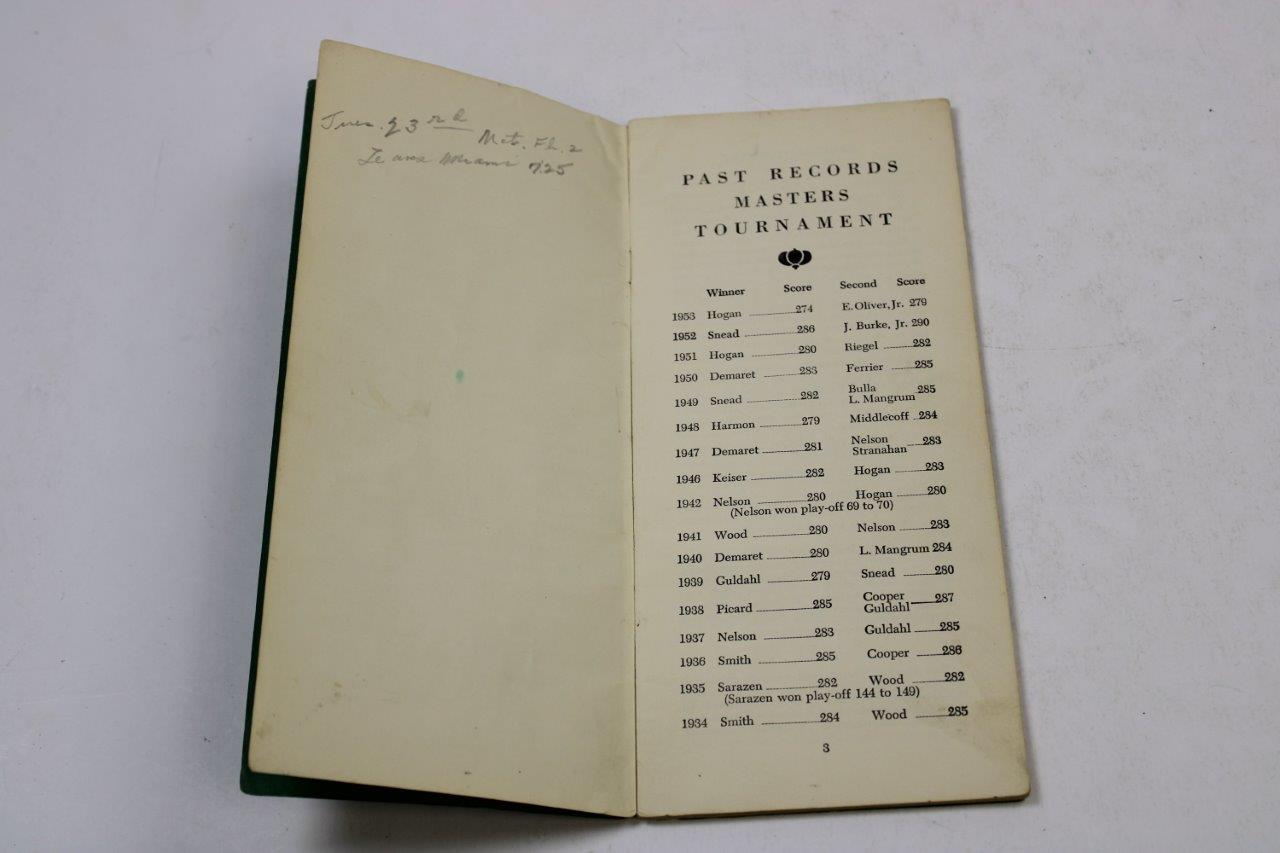 Tues. 23rd
Nat. Fl. 2
Leaves Miami 7:25
PAST RECORDS
MASTERS
TOURNAMENT
Winner Score Second Score
1953 Hogan 274 E. Oliver, Jr. 279
1952 Snead 286 J. Burke, Jr. 290
1951 Hogan 280 Riegel 282
1950 Demaret 283 Ferrier 285
1949 Snead 282 Bulla
L. Mangrum 285
1948 Harmon 279 Middlecoff 284
1947 Demaret 281 Nelson
Stranahan 283
1946 Keiser 282 Hogan 283
1942 Nelson 280 Hogan 280
(Nelson won play-off 69 to 70)
1941 Wood 280 Nelson 283
1940 Demaret 280 L. Mangrum 284
1939 Guldahl 279 Snead 280
1938 Picard 285 Cooper
Guldahl 287
1937 Nelson 283 Guldahl 285
1936 Smith 285 Cooper 286
1935 Sarazen 282 Wood 282
(Sarazen won play-off 144 to 149)
1934 Smith 284 Wood 285
3